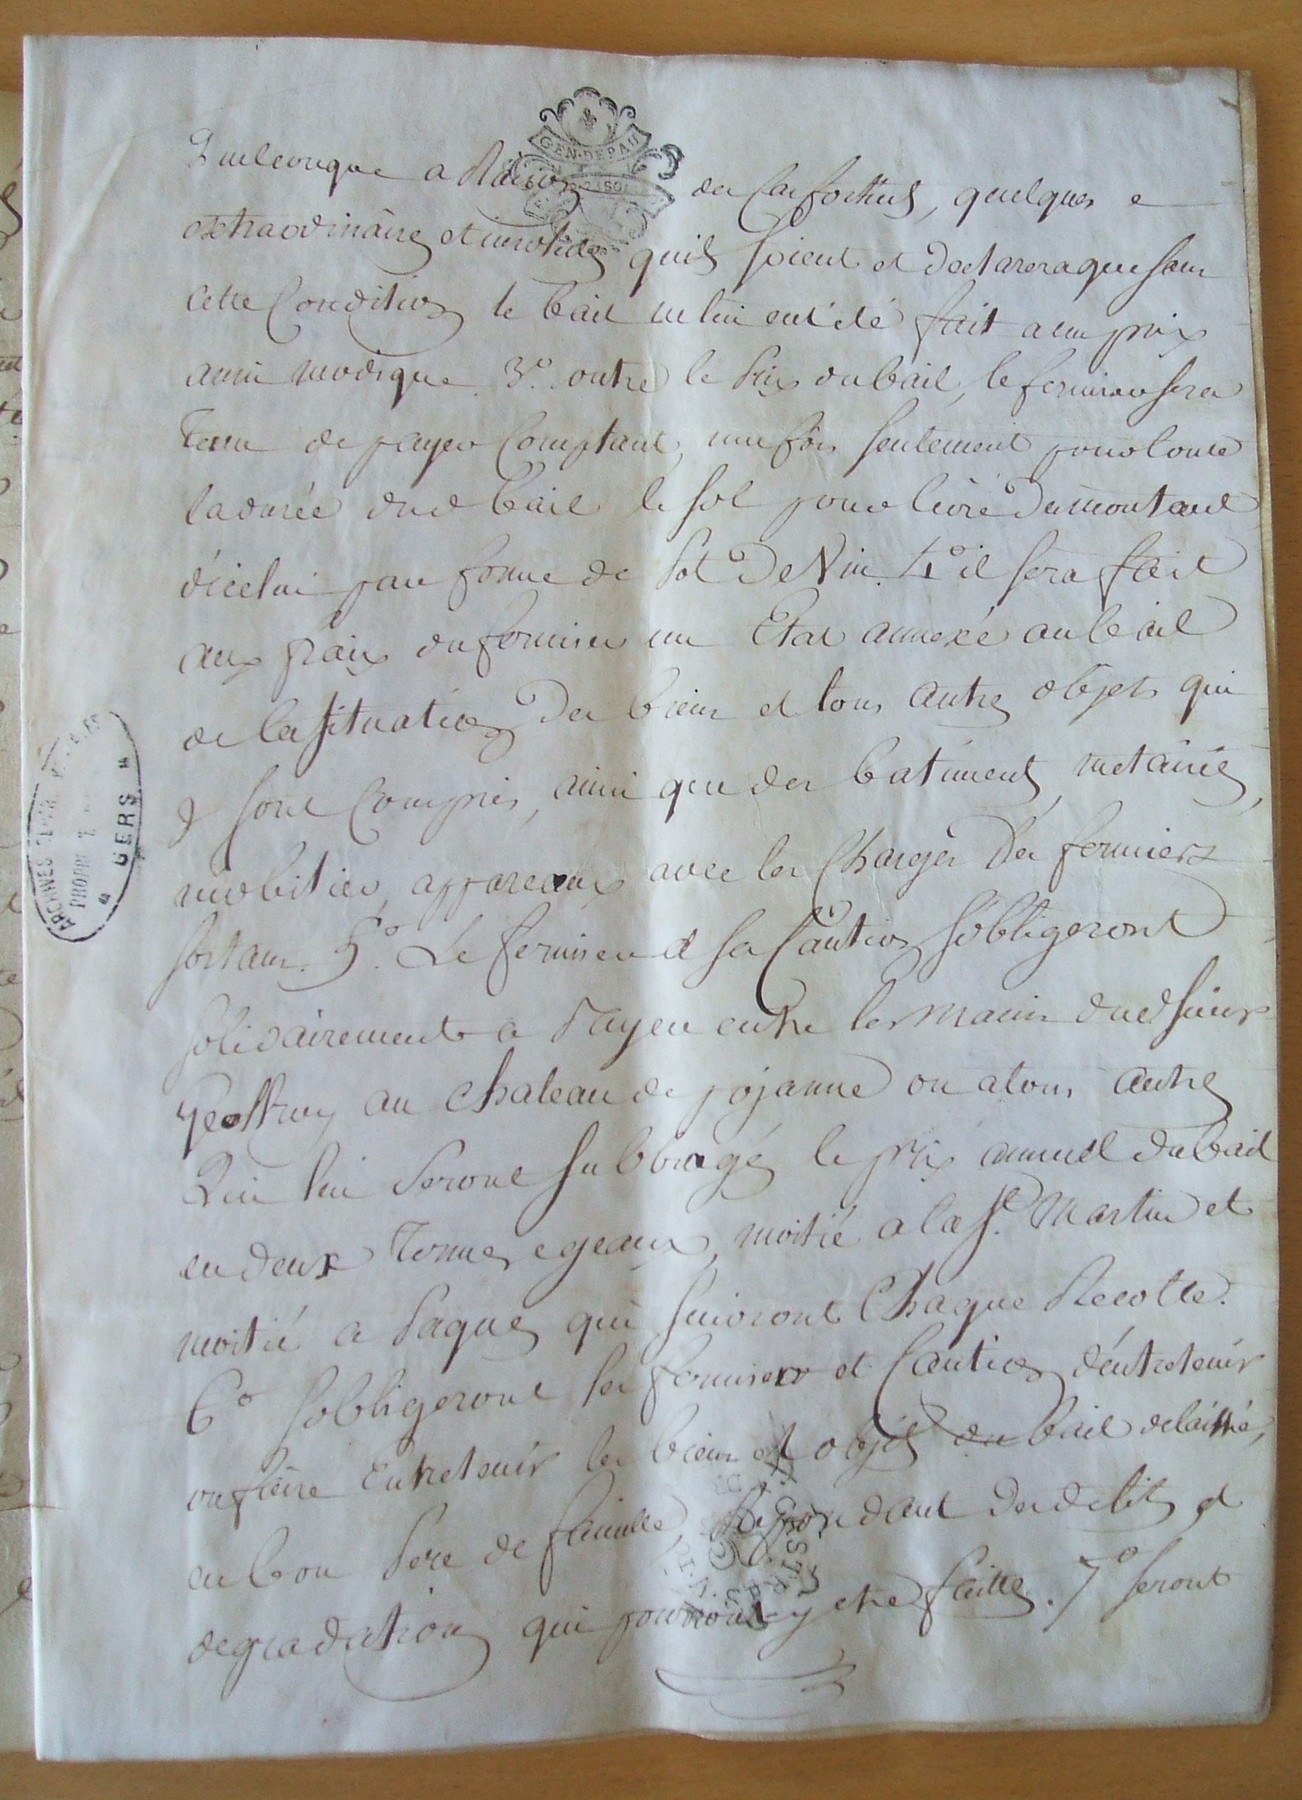 GEN. DE PAU
Quelconque a Raison des Cas fortuits, quelques
extraordinaires et inusités quils soient et declarera que sans
cette Condition le bail ne lui eut été fait a un prix
aussi modique. 3.° outre le Prix du bail, le fermier sera
Tenu de payer Comptant, une fois seulement pour toute
la durée dud bail le sol pour livre Du montant
d'icelui par forme de Pot De Vin. 4° il sera fait
aux fraix du fermier un Etat annexé au bail
de la situation Des biens et tous autres objets qui
y sont Compris, ainsi que des batiments, metairies,
mobilier, appareaux avec les Charges Des fermiers
sortans. 5°. Le fermier et sa Caution s'obligeront
solidairement a Payer entre les mains dud sieur
Geoffroy au Chateau de pojanne ou a tous autres
Qui lui seront subbrogés le prix annuel du bail
en deux Termes egeaux, moitié a la St. Martin et
moitié a Paques qui suivront Chaque Recolte.
6° sobligeront les fermier et Caution d'entretenir
ou faire Entretenir les biens et objets du bail delaissé,
en bon Pere de famille, Repondant Des delits et
degradations qui pourront y etre faittes. 7° seront
ARCHIVES
PROPRI
GERS